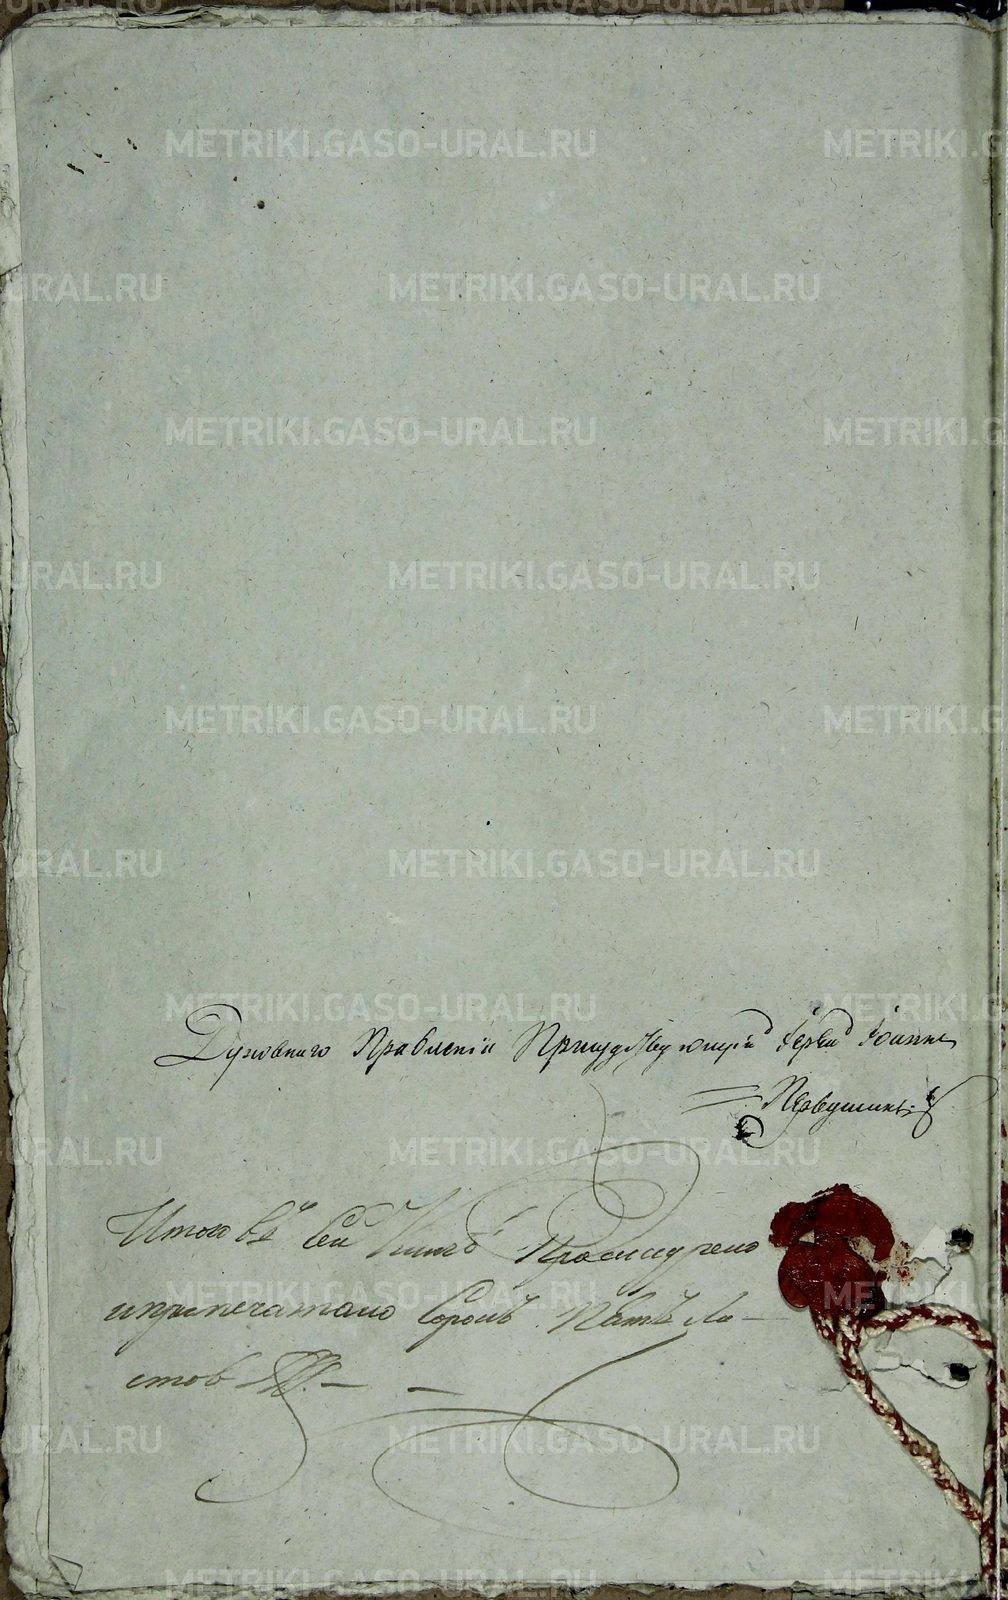 Духовнаго Правленія Присудствующій Іерей Іоаннъ
Первушинъ
Итого въ сей Книгѣ Прошнурено
и припечатано Сорокъ Пять Ли-
стов
METRIKI.GASO-URAL.RU